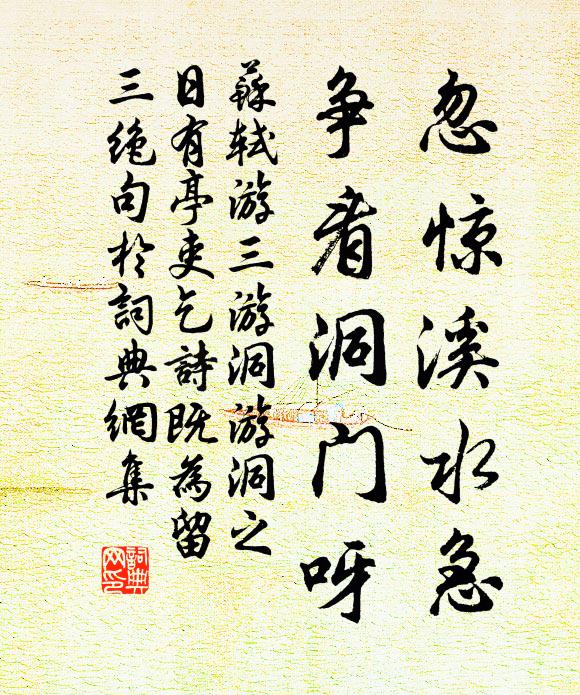 忽惊溪水急
争看洞门呀
蘇轼游三游洞游洞之
日有亭吏乞詩既為留
三绝句於詞典網集
詞典网印